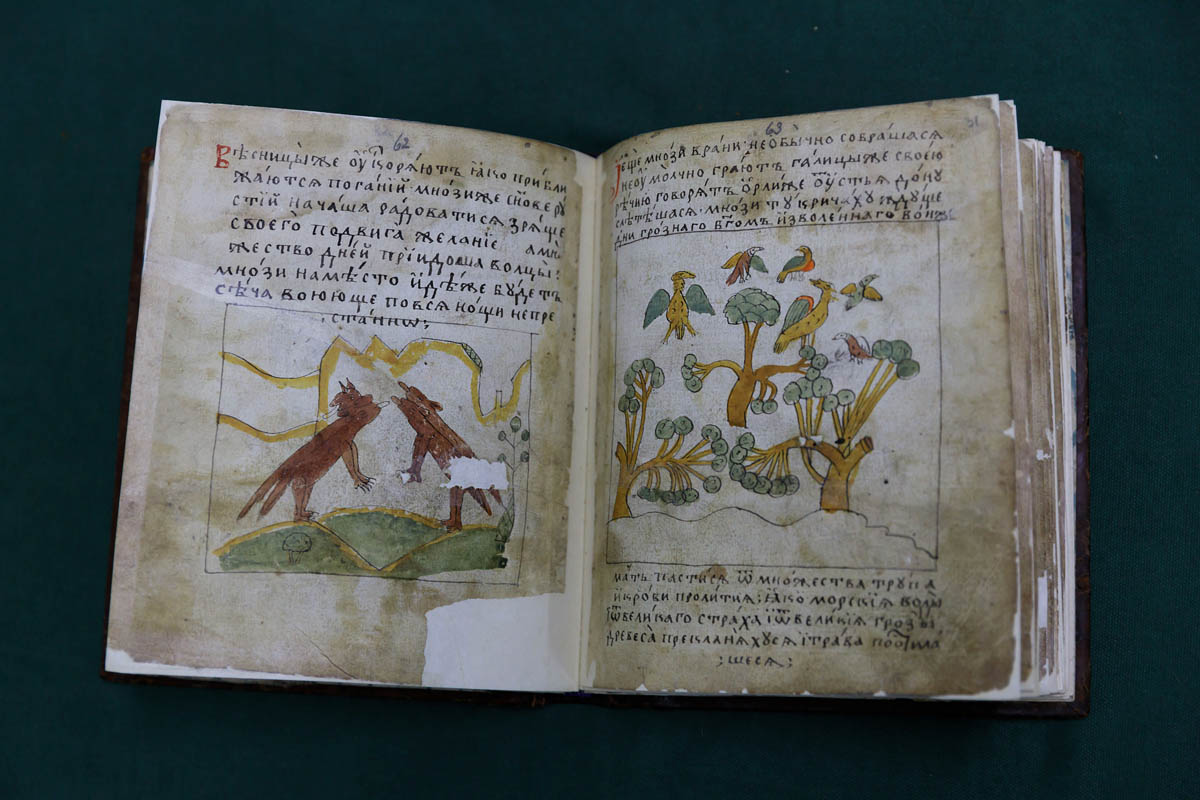 62
Вѣсницы же ѹскоряютъ ꙗко прибли
жаются поганїи: мнози же снове ру
стїи начаша радоватися зряще
своего подвига желанїе
жество днеи прїидоша волцы:
мнози намѣсто идѣже будетъ
сѣча воюще повся нощи непре
станнѡ;
63
31
Іеще мнози врани: необычно собрашася
неѹмолчно граютъ галицы же своею
рѣчию говорятъ ѻрли же ѿ ѹстья дону
слѣтѣшася: мнози ту кричаху ждуще
дни грознаго бг҃омъ изволеннаго
мать пастися ѿ множества трупа
и крови пролития; ꙗко морския воды
ѿ великаго страха і ѿ великия грозы
древеса прекланяхуся і трава постила
шеся;